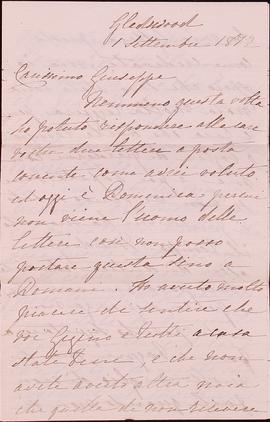 Gledswood
1 Settembre 1872
Carissimo Giuseppe
Nemmeno questa volta
ho potuto rispondere alle care
vostre due lettere a posta
corrente come avrei voluto
ed oggi è Domenica perciò
non viene l'uomo delle
lettere così non posso
postare questa sino a
Domani. Ho avuto molto
piacere di sentire che
voi Gigino e tutti a casa
state bene, e che non
avete avuto altra noia
che quella di non ricevere